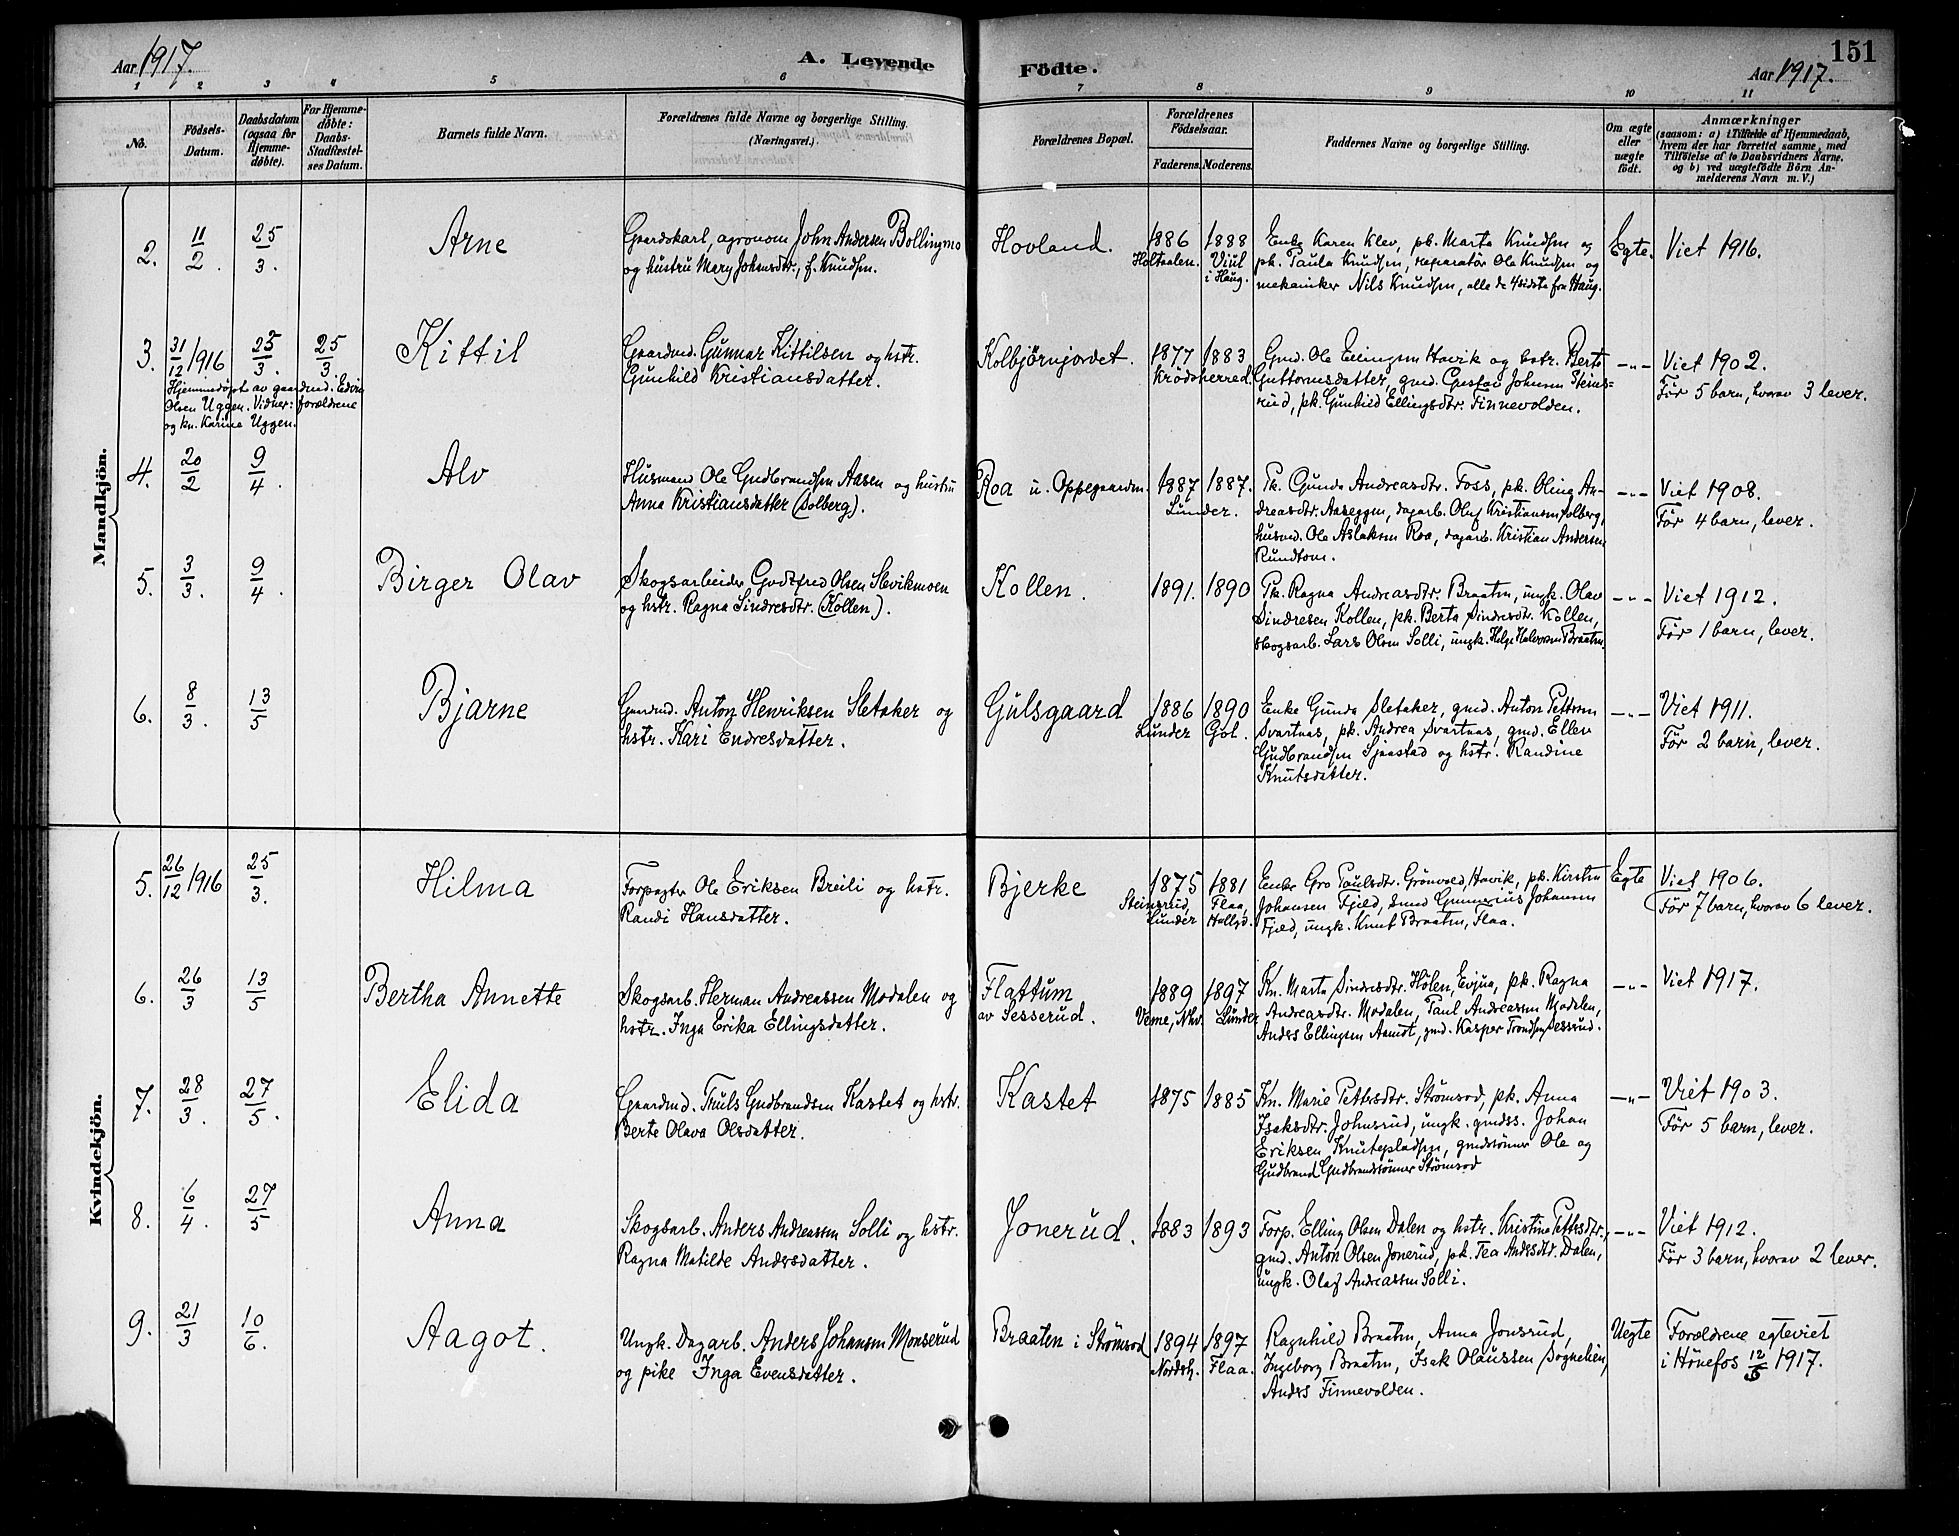 Aar 1917.
A. Levende Födte.
Aar 1917.
151
1 2 3 4 5 6 7 8 9 10 11
No.
Födsels-Datum.
Daabsdatum (ogsaa for Hjemmedøbte).
For Hjemmedøbte: Daabs-Stadfæstelses Datum.
Barnets fulde Navn.
Forældrenes fulde Navne og borgerlige Stilling.
(Næringsvei.)
Forældrenes Bopæl.
Forældrenes Födselsaar.
Faderens. Moderens.
Faddernes Navne og borgerlige Stilling.
Om ægte eller uægte født.
Anmærkninger
(saasom: a) i Tilfælde af Hjemmedaab,
hvem der har forrettet samme, med
Tilföielse af to Daabsvidners Navne,
og b) ved uægtefödte Börn An-
melderens Navn m. V.)
Mandkjön.
2. 11/2. 25/3. Arne
Gaardskarl, agronom John Andersen Bollingmo
og hustru Mary Johansdtr., f. Knudsen.
Hovland.
1886 Holtaalen. 1888 Viul i Haug.
Enke Karen Klev, pk. Marta Knudsen og
pk. Paula Knudsen, reparatör Ole Knudsen og
mekaniker Nils Knudsen, alle de 4 sidste fra Haug.
Egte. Viet 1916.
3. 31/12 1916 25/3. 25/3 Kittil
Hjemmedøpt av gaardmd. Edvin
Olsen Uggen. Vidner: forældrene
og kn. Karine Uggen.
Gaardmd. Gunnar Kittilsen og hstr.
Gunhild Kristiansdatter.
Kolbjörnjordet.
1877 1883 Krödsherred.
Gmd. Ole Ellingsen Havik og hstr. Berte
Guttormsdatter, gmd. Gustav Johnsen Steins-
rud, pk. Gunhild Ellingsdtr. Finnevolden.
-"- Viet 1902.
Før 5 barn, hvorav 3 lever.
4. 20/2 9/4. Alv
Husmand Ole Gudbrandsen Aasen og hustru
Anna Kristiansdatter (Solberg).
Roa u. Oppegaarden.
1887 1887. Lunder.
Pk. Gunda Andreasdtr. Foss, pk. Oline An-
dreasdtr. Aaseggen, dagarb. Oluf Kristiansen Solberg,
husmd. Ole Aslaksen Roa, dagarb. Kristian Andersen
Rundtom.
-"- Viet 1908.
Før 4 barn, lever.
5. 3/3. 9/4. Birger Olav
Skogsarbeider Godtfred Olsen Slevikmoen
og hstr. Ragna Sindresdtr. (Kollen).
Kollen.
1891. 1890
Pk. Ragna Andreasdtr. Braaten, ungk. Olav
Sindresen Kollen, pk. Berta Sindresdtr. Kollen,
skogsarb. Lars Olsen Solli, ungk. Helge Halvorsen Braaten.
-"- Viet 1912.
Før 1 barn, lever.
6. 8/3. 13/5 Bjarne
Gaardmd. Anton Henriksen Sletaker og
hstr. Kari Endresdatter.
Gulsgaard
1886 Lunder 1890 Gol.
Enke Gunda Sletaker, gmd. Anton Pettersen
Svartnas, pk. Andrea Svartnas, gmd. Ellev
Gudbrandsen Sjaastad og hstr. Randine
Knutsdatter.
-"- Viet 1911.
Før 2 barn, lever.
Kvindekjön.
5. 26/12 1916 25/3. Hilma
Forpagter Ole Eriksen Breili og hstr.
Randi Hansdatter.
Bjerke
1875 Steinsrud, Lunder 1881 Flaa, Hallgd.
Enke Gro Paulsdtr. Grönvold, Havik, pk. Kirsten
Johansen Fjeld, smed Gunnerius Johansen
Fjeld, ungk. Knut Braaten, Flaa.
Egte Viet 1906.
Før 7 barn, hvorav 6 lever.
6. 26/3 13/5 Bertha Annette
Skogsarb. Herman Andreassen Modalen og
hstr. Inga Erika Ellingsdatter.
Flattum
av Sesserud.
1889 Veme, Nhv. 1897 Lunder
Kn. Marta Sindresdtr. Hølen, Evjua, pk. Ragna
Andreasdtr. Modalen, Paul Andreassen Modalen,
Anders Ellingsen Aamot, gmd. Kasper Trondsen Sesserud.
-"- Viet 1917.
7. 28/3. 27/5. Elida
Gaardmd. Truls Gudbrandsen Kastet og hstr.
Berte Olava Olsdatter.
Kastet
1875 1885
Kn. Marie Pettersdtr. Strömsod, pk. Anna
Isaksdtr. Johnsrud, ungk. gmdss. Johan
Eriksen Knutepladsen, gmdsönner Ole og
Gudbrand Gudbrandsönner Strömsod
-"- Viet 1903.
Før 5 barn, lever.
8. 6/4. 27/5 Anna
Skogsarb. Anders Andreassen Solli og hstr.
Ragna Matilde Andersdatter.
Jonerud.
1883 1893
Forp. Elling Olsen Dalen og hstr. Kristine Pettersdtr.,
gmd. Anton Olsen Jonerud, pk. Tea Andersdtr. Dalen,
ungk. Olaf Andreassen Solli.
-"- Viet 1912.
Før 3 barn, hvorav 2 lever.
9. 21/3 10/6. Aagot.
Ungk. Dagarb. Anders Johansen Monserud
og pike Inga Evensdatter.
Braaten i Strömsod
1894 Nordsh. 1897 Flaa.
Ragnhild Braaten, Anna Jonsrud,
Ingeborg Braaten, Isak Olaussen Sognelien,
Anders Finnevolden.
Uegte Forældrene egteviet
i Hönefos 12/5 1917.